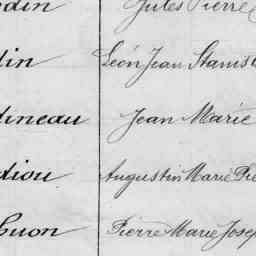 odin Jules Pierre
din Léon Jean Stanis
dineau Jean Marie
diou Augustin Marie Pie
huon Pierre Marie Josep